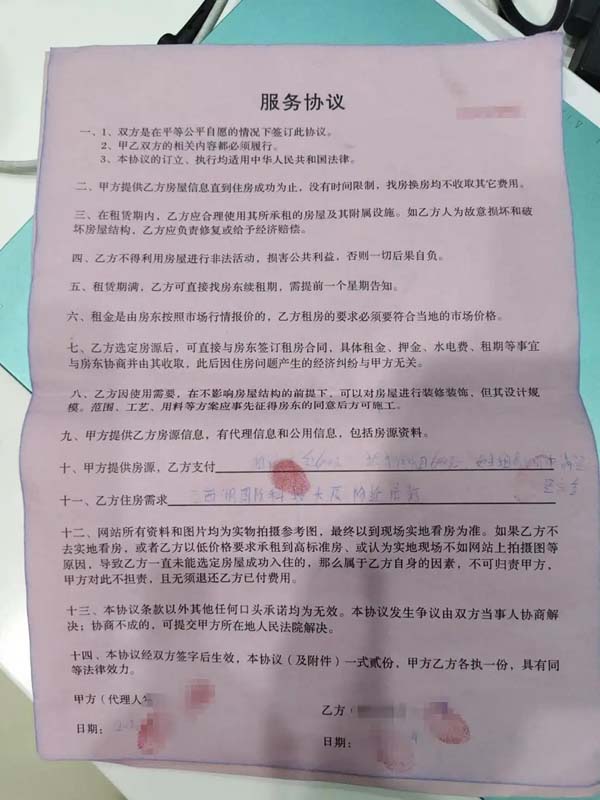 服务协议
一、1、双方是在平等公平自愿的情况下签订此协议。
2、甲乙双方的相关内容都必须履行。
3、本协议的订立、执行均适用中华人民共和国法律。
二、甲方提供乙方房屋信息直到住房成功为止，没有时间限制，找房换房均不收取其它费用。
三、在租赁期内，乙方应合理使用其所承租的房屋及其附属设施。如乙方人为故意损坏和破
坏房屋结构，乙方应负责修复或给予经济赔偿。
四、乙方不得利用房屋进行非法活动，损害公共利益，否则一切后果自负。
五、租赁期满，乙方可直接找房东续租期，需提前一个星期告知。
六、租金是由房东按照市场行情报价的，乙方租房的要求必须要符合当地的市场价格。
七、乙方选定房源后，可直接与房东签订租房合同，具体租金、押金、水电费、租期等事宜
与房东协商并由其收取，此后因住房问题产生的经济纠纷与甲方无关。
八、乙方因使用需要，在不影响房屋结构的前提下，可以对房屋进行装修装饰，但其设计规
模。范围、工艺、用料等方案应事先征得房东的同意后方可施工。
九、甲方提供乙方房源信息，有代理信息和公用信息，包括房源资料。
十、甲方提供房源，乙方支付
十一、乙方住房需求
十二、网站所有资料和图片均为实物拍摄参考图，最终以到现场实地看房为准。如果乙方不
去实地看房，或者乙方以低价格要求承租到高标准房、或认为实地现场不如网站上拍摄图等
原因，导致乙方一直未能选定房屋成功入住的，那么属于乙方自身的因素，不可归责甲方，
甲方对此不担责，且无须退还乙方已付费用。
十三、本协议条款以外其他任何口头承诺均为无效。本协议发生争议由双方当事人协商解
决；协商不成的，可提交甲方所在地人民法院解决。
十四、本协议经双方签字后生效，本协议（及附件）一式贰份，甲方乙方各执一份，具有同
等法律效力。
甲方（代理人
乙方（
日期：
日期：